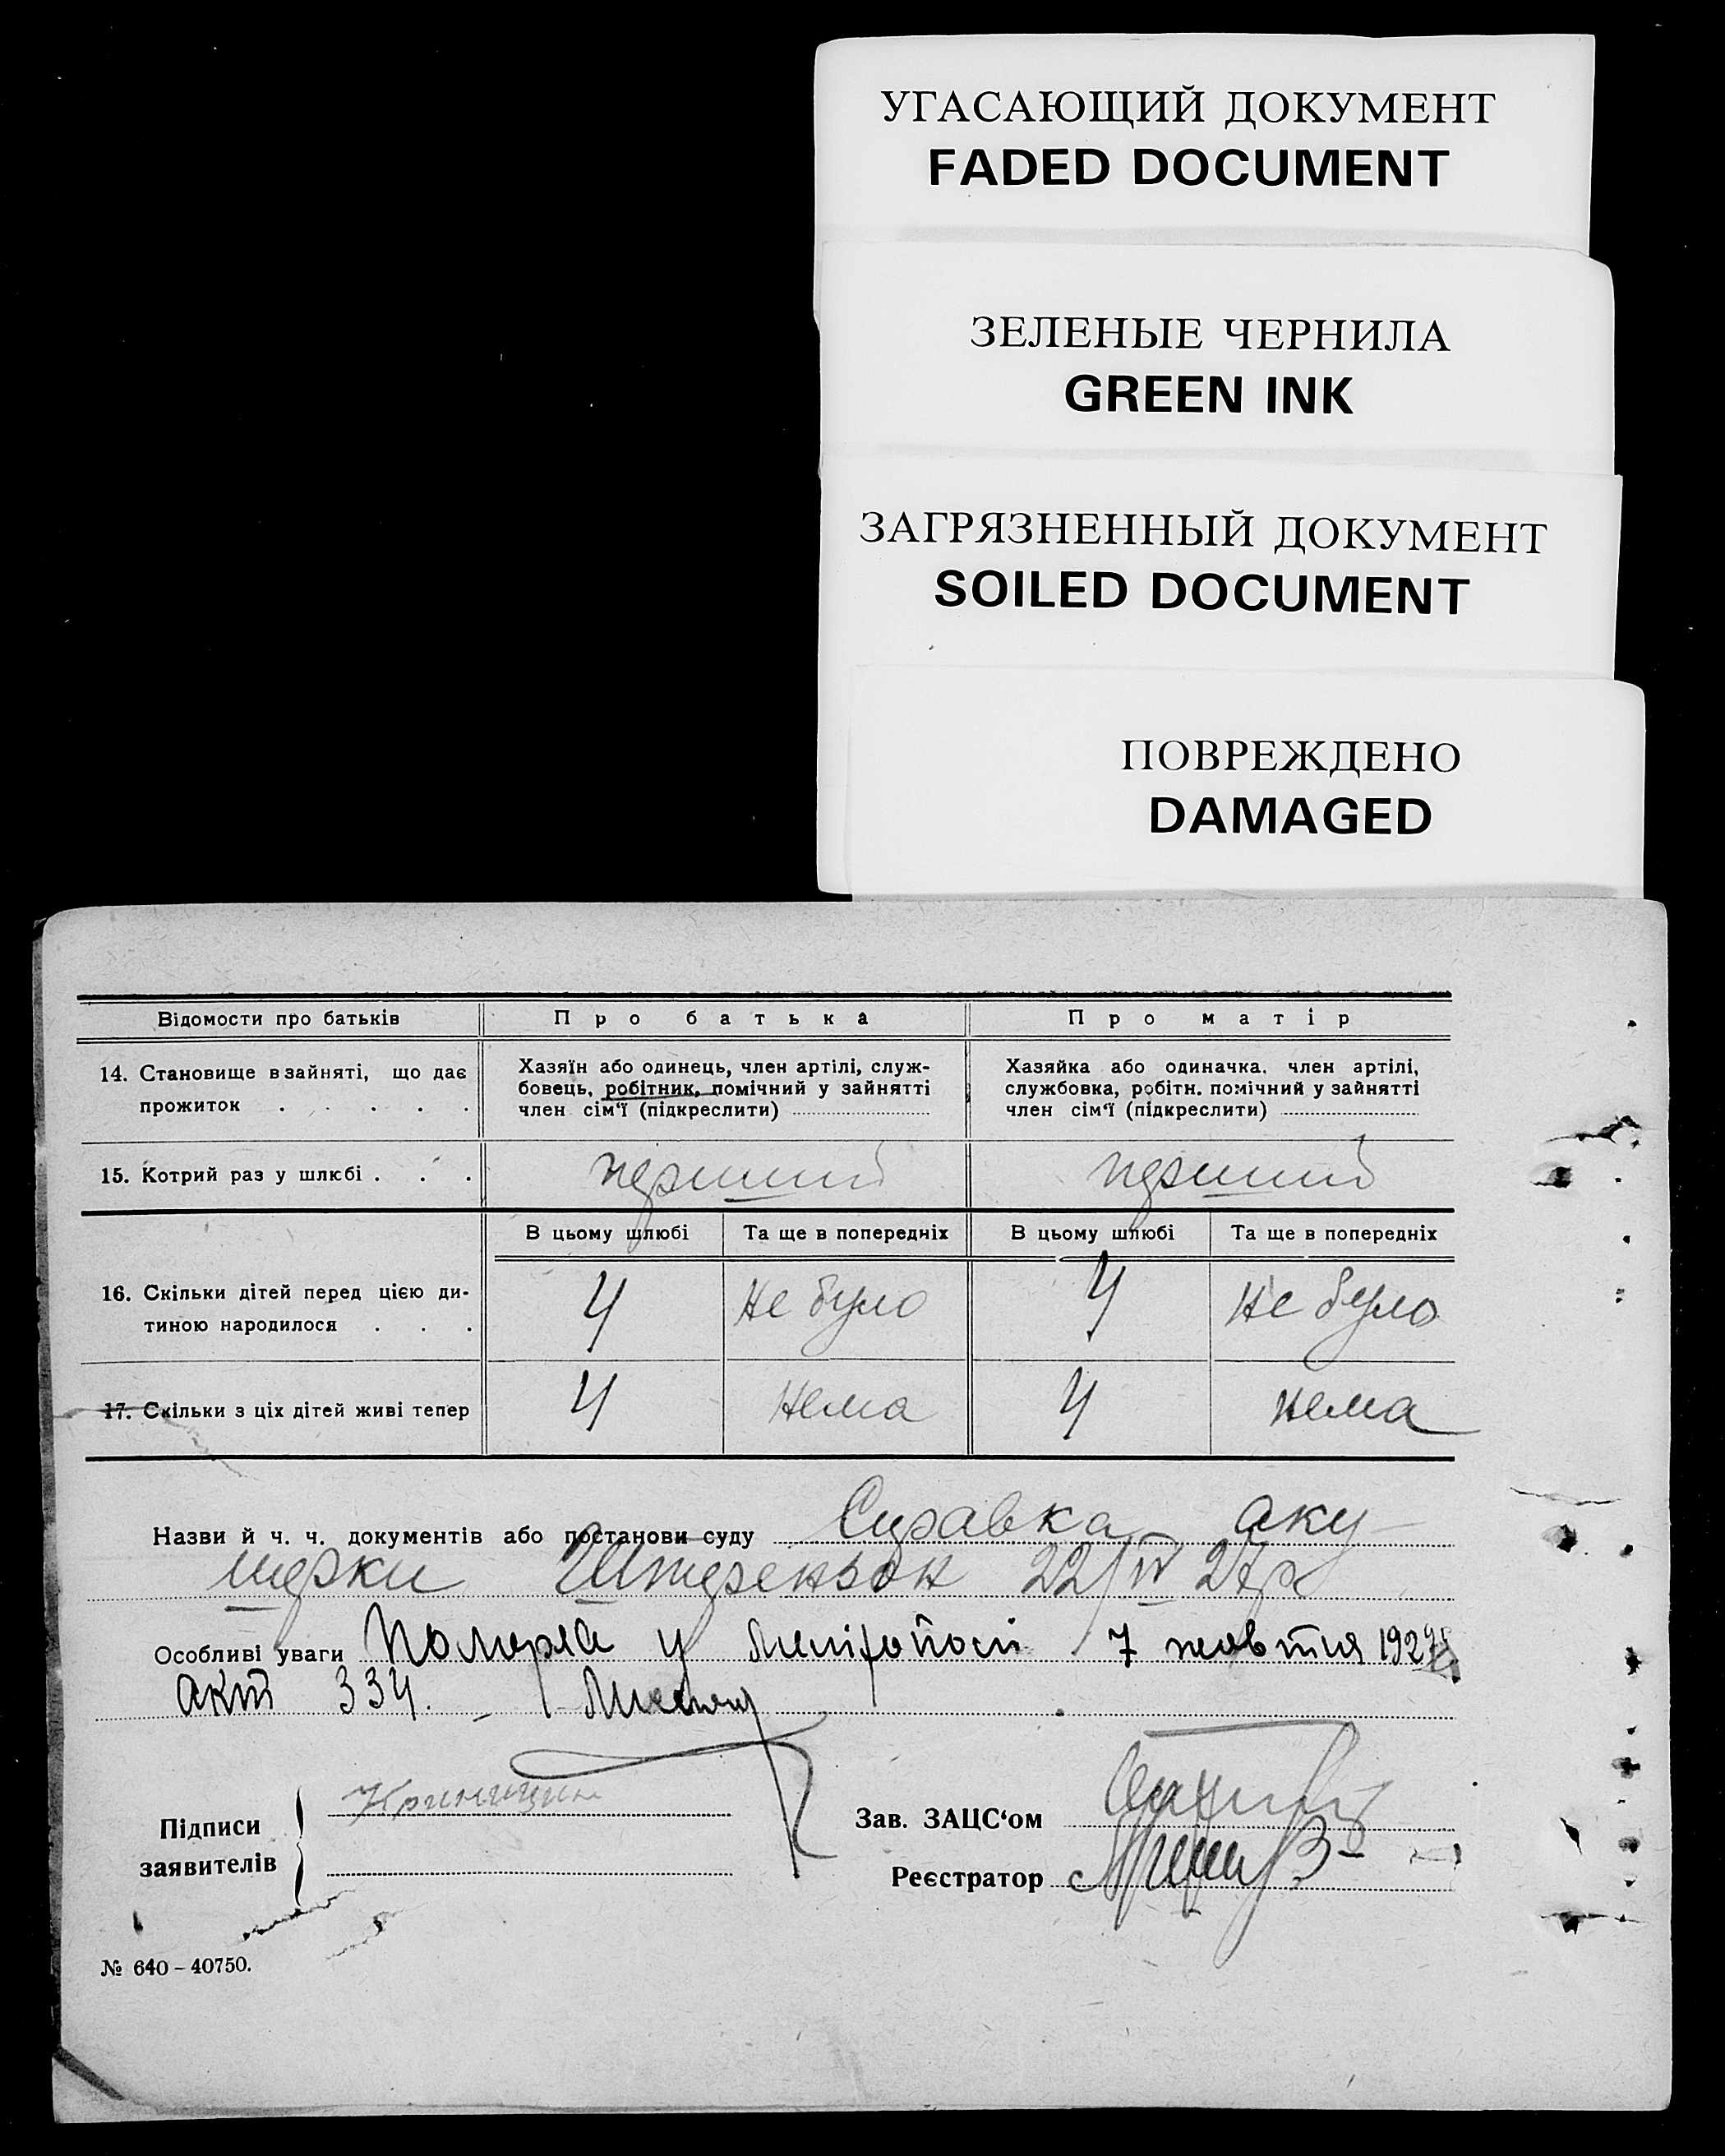 УГАСАЮЩИЙ ДОКУМЕНТ
FADED DOCUMENT
ЗЕЛЕНЫЕ ЧЕРНИЛА
GREEN INK
ЗАГРЯЗНЕННЫЙ ДОКУМЕНТ
SOILED DOCUMENT
ПОВРЕЖДЕНО
DAMAGED
Відомости про батьків Про батька Про матір
14. Становище в зайняті, що дає
прожиток . . . . .
Хазяїн або одинець, член артілі, служ-
бовець, робітник, помічний у зайнятті
член сім'ї (підкреслити)
Хазяйка або одиначка. член артілі,
службовка, робітн. помічний у зайнятті
член сім'ї (підкреслити)
15. Котрий раз у шлюбі . . . перший перший
В цьому шлюбі Та ще в попередніх В цьому шлюбі Та ще в попередніх
16. Скільки дітей перед цією ди-
тиною народилося . . .
4 не було 4 не було
17. Скільки з ціх дітей живі тепер 4 нема 4 нема
Назви й ч. ч. документів або постанови суду Справка аку
шерки 22/IV 27р
Особливі уваги Померла у 7 жовтня 192
акт 334.
Підписи
заявителів
Криницин
Зав. ЗАЦС'ом
Реєстратор
№ 640 – 40750.